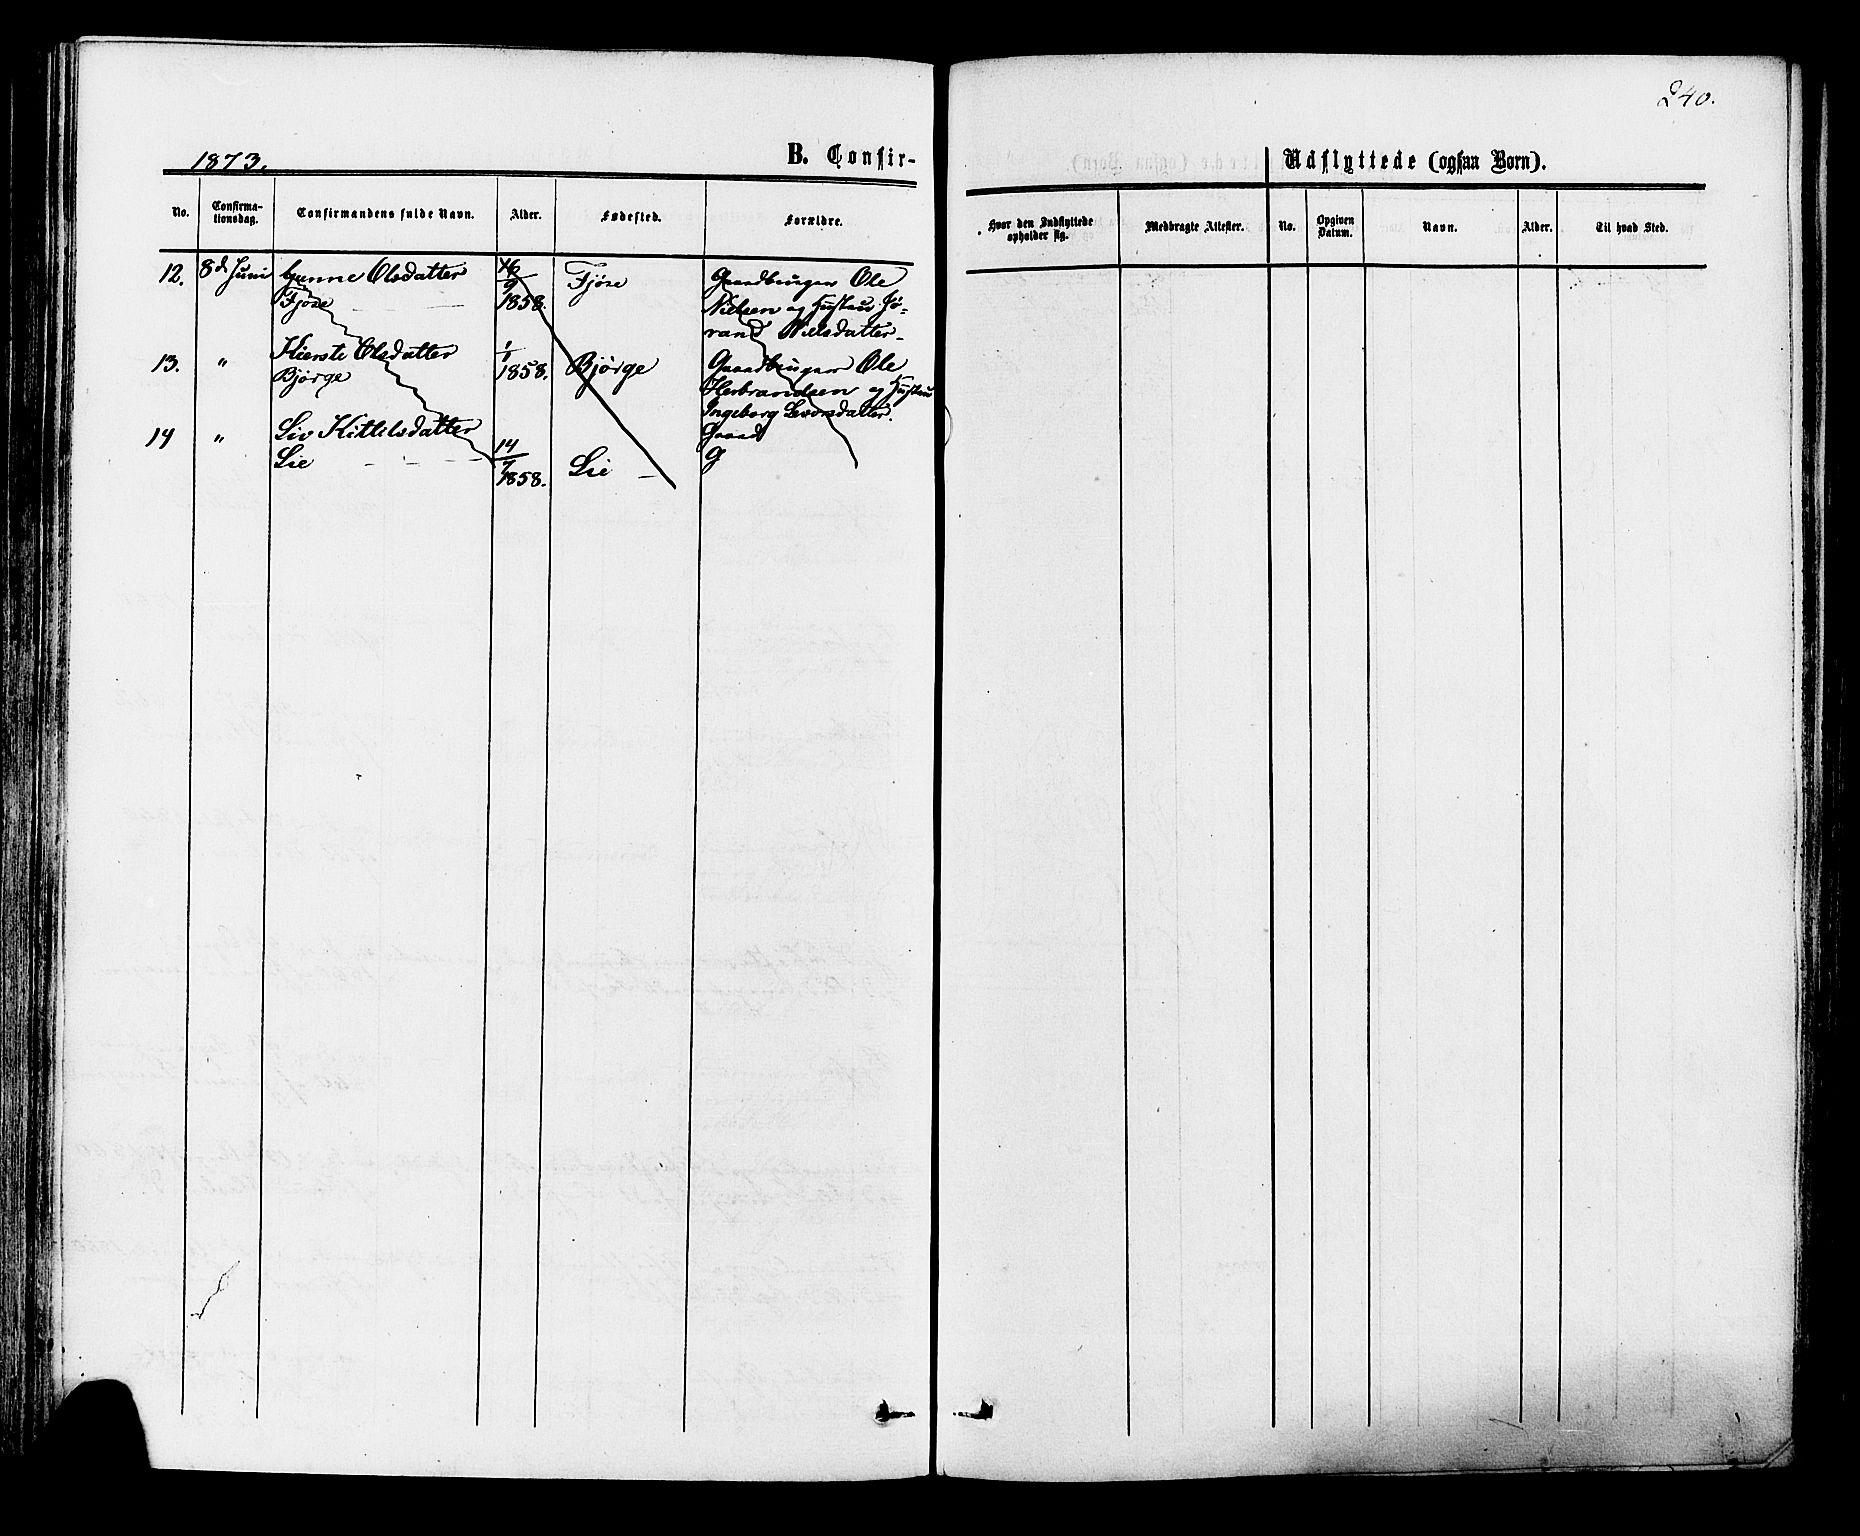 240.
1873.
B. Confir-
No. Confirma-tionsdag. Confirmandens fulde Navn. Alder. Fødested. Forældre.
12. 8de Juni Gunne Olsdatter 16/9 Fjøse Gaardbruger Ole
Fjøse 1858. Nielsen og Hustru Jø-
rand Nielsdatter
13. " Kierste Olsdatter 1/1 Bjørge Gaardbruger Ole
Bjørge 1858. Herbrandsen og Hustru
Ingeborg Levorsdatter.
14 " Liv Kittilsdatter 14/7 Lie Gaard
Lie 1858. G
Udflyttede (ogsaa Børn).
Hvor den Indflyttede opholder sig. Medbragte Attester. No. Opgiven Datum. Navn. Alder. Til hvad Sted.